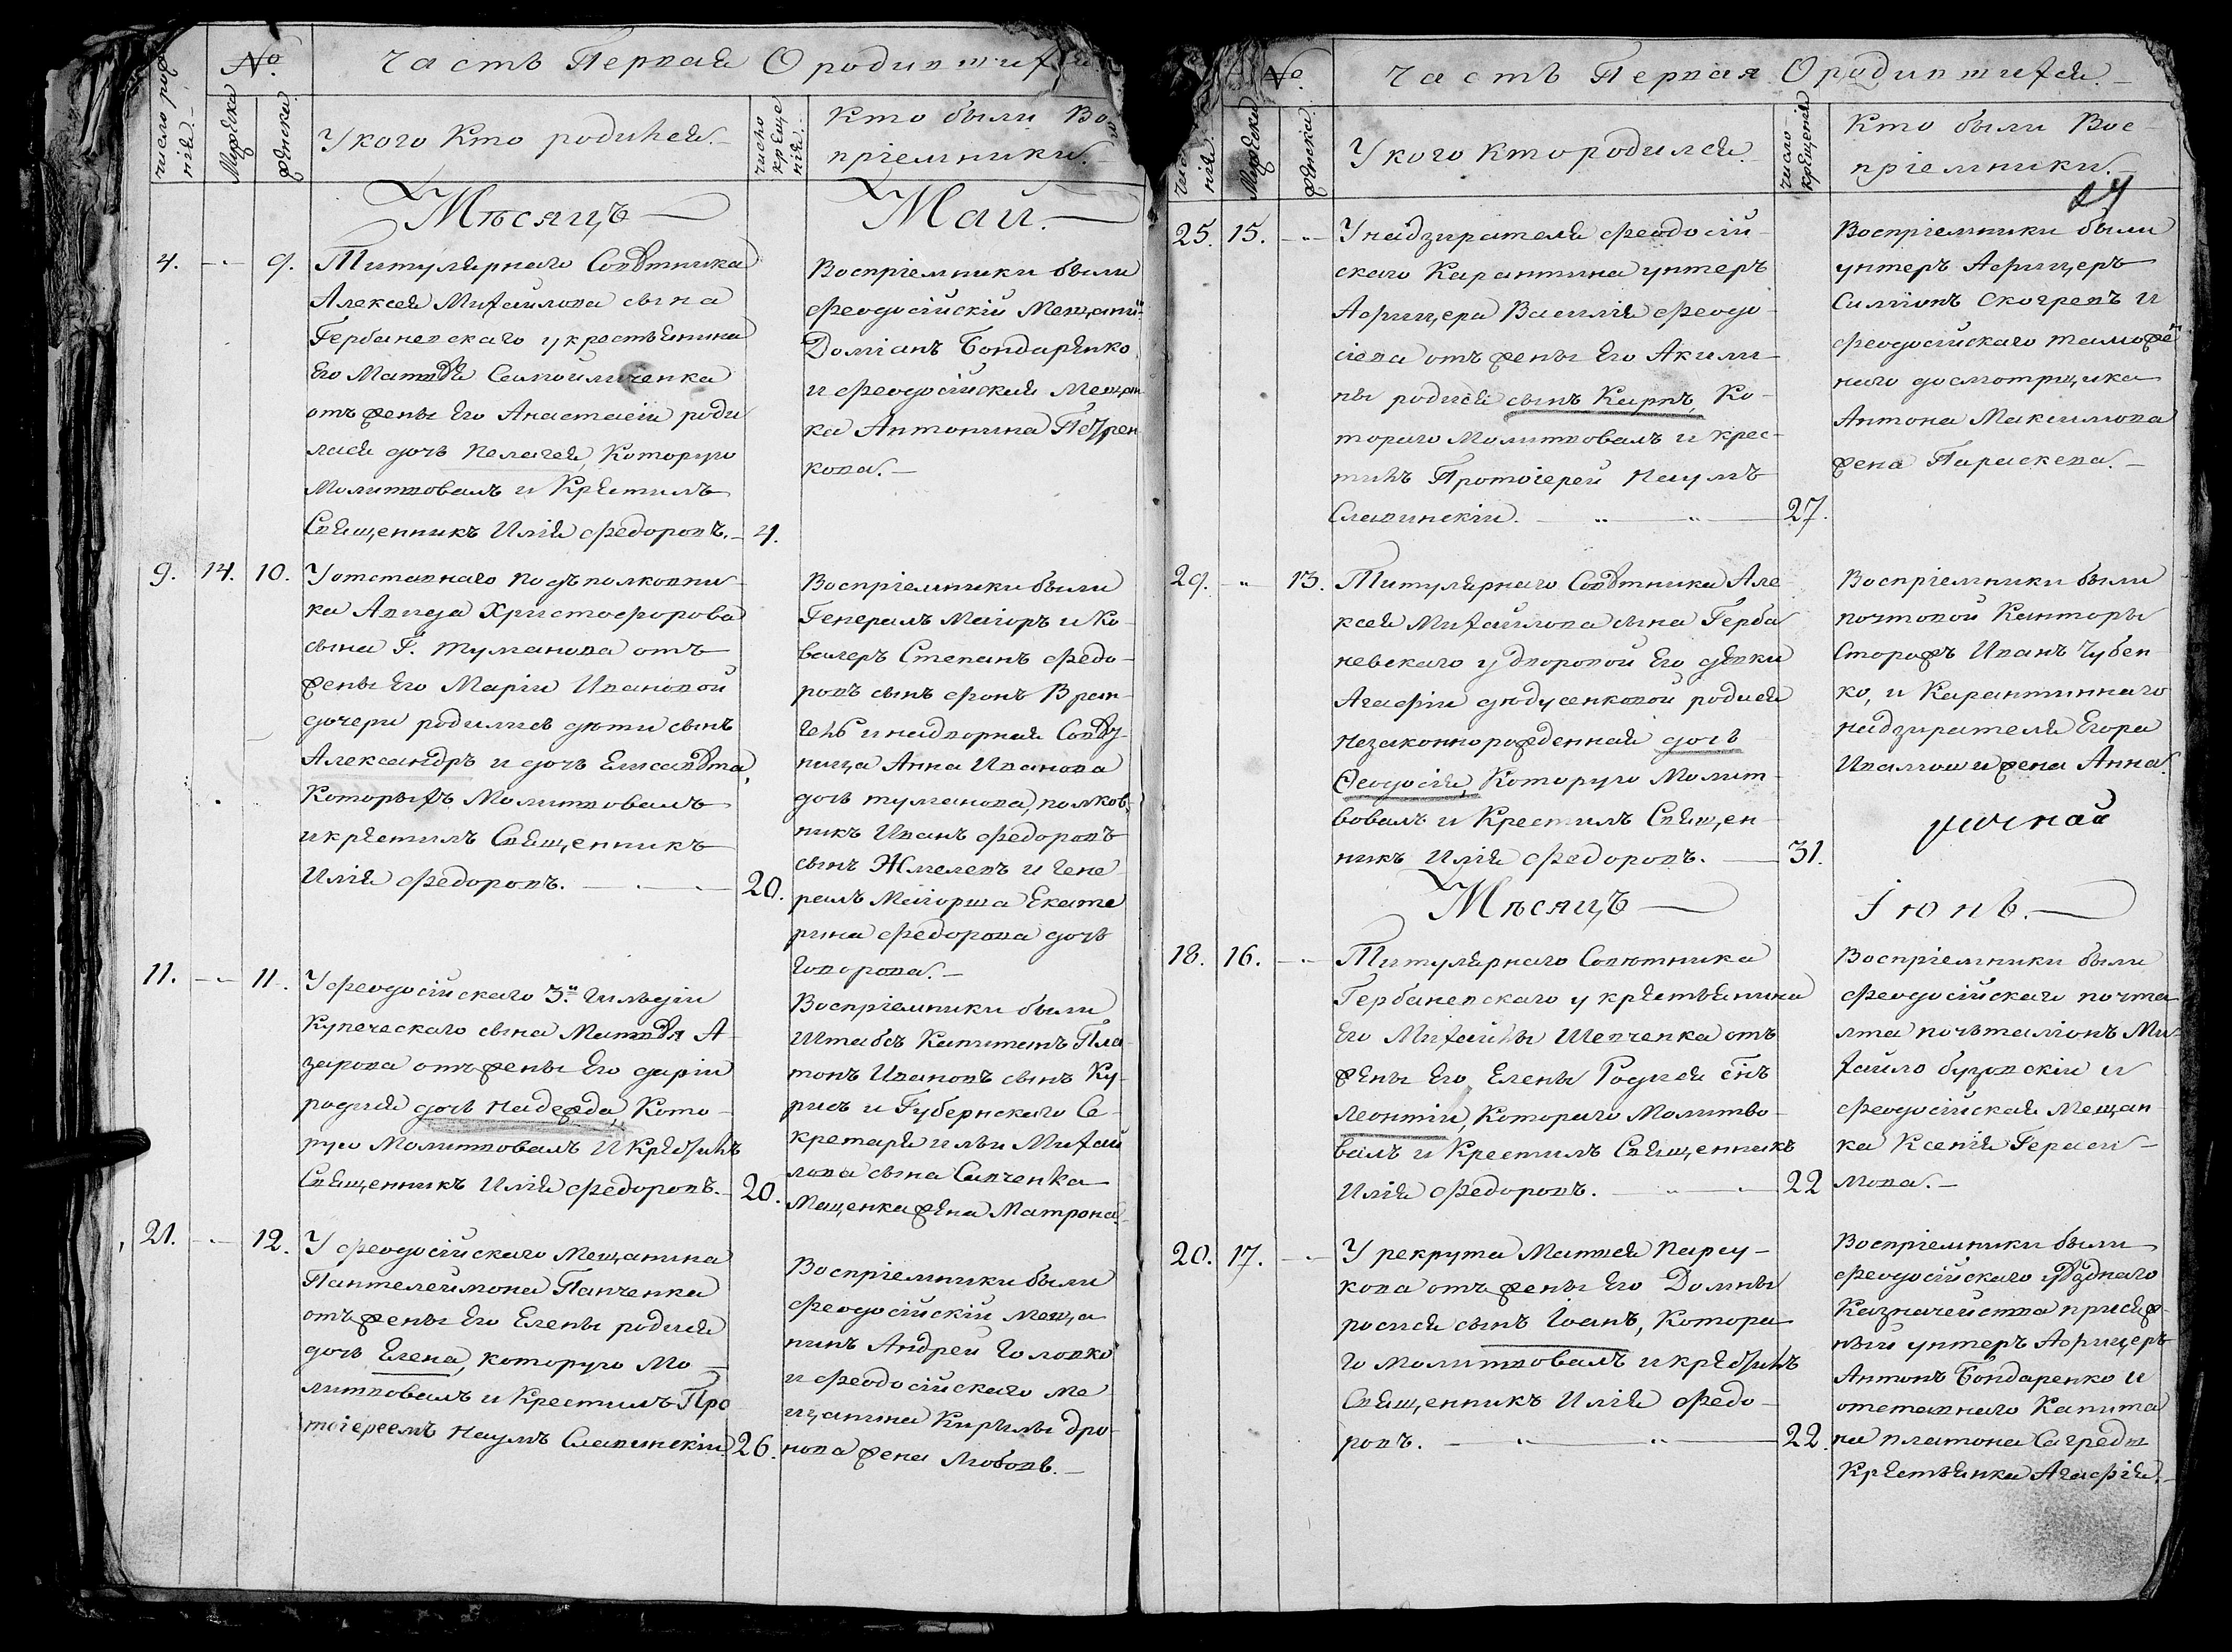 Часть Первая О родившихся
№
число рожденія
Мужска
Женска
У кого Кто родился
число крещенія
Кто были Воспріемники
Мѣсяцъ
Май.
4. 9.
Титулярнаго Совѣтника
Алексея Михайлова сына
Гербаневскаго у крестьянина
Его Матвѣя
отъ жены Его Анастасіи роди
лася дочь Пелагея, Которую
Молитвовалъ и Крестилъ
Священникъ Илія Федоровъ.
4.
Воспріемники были
феодосійскій Мещани:
Доміанъ Бондаренко
и феодосійская Мещан
ка Антонина Петрен
кова.
9. 14. 10.
У отставнаго подъполковни
ка Авида Христофорова
сына Г. Туманова отъ
жены Его Маріи Ивановой
дочери родились дѣти сынъ
Александръ и дочь Елисавѣта,
Которыхъ Молитвовалъ
и крестилъ Священникъ
Илія Федоровъ.
20.
Воспріемники были
Генералъ Маіоръ и Ка-
валеръ Степанъ Федо-
ровъ сынъ фонъ Вран-
гель и надворная Совѣт-
ница Анна Иванова
дочь туманова, полков-
никъ Иванъ Федоровъ
сынъ Жмелевъ и Гене
ралъ Маіорша Екате
рина Федорова дочь
Говорова.
11. 11.
У феодосійскаго 3й Гильдіи
Купеческаго сына Матвѣя А-
зарова отъ жены Его Даріи
родися дочь Надежда, Кото-
рую Молитвовалъ и Крестилъ
Священникъ Илія Федоровъ.
20.
Воспріемники были
Штабсъ Капитанъ Пла
тонъ Ивановъ сынъ Ку-
рисъ и Губернскаго Се-
кретаря Ильи Михай
лова сына Савченка
Мащенка жена Матрона.
21. 12.
У феодосійскаго Мещанина
Пантелеймона Панченка
отъ жены Его Елены родися
дочь Елена, которую Мо-
литвовалъ и Крестилъ Про
тоіереемъ Наумъ Славинскій
26.
Воспріемники были
феодосійскій меща
нинъ Андрей Головко
и феодосійскаго ме
щанина Кирилы Дро-
нова жена Любовь.
Часть Первая О родившихся
№
число рожденія
Мужска
Женска
У кого кто родился
число крещенія
Кто были Вос-
пріемники
25. 15.
У надзирателя феодосій
скаго Карантина унтеръ
Афицера Василія феодо
сіева отъ жены Его Акили-
ны родися сынъ Карпъ, Ко-
тораго Молитвовалъ и крес-
тилъ Протоіерей Наумъ
Славинскій.
27.
Воспріемники были
унтеръ Афицеръ
Силліонъ Скогревъ и
феодосійскаго таможе
ннаго досмотрщика
Антона Максимова
жена Параскева.
29. 13.
Титулярнаго Совѣтника Але
ксея Михайлова сына Герба
невскаго у дворовой Его дѣвки
Агафіи дѣдусенковой родися
незаконнорожденная дочь
Ѳеодосія, Которую Молит-
вовалъ и Крестилъ Священ
никъ Илія Федоровъ.
31.
Воспріемники были
почтовой Канторы
Сторожъ Иванъ Чубен-
ко, и Карантиннаго
надзирателя Егора
жена Анна.
Мѣсяцъ
Іюнь.
18. 16.
Титулярнаго Совѣтника
Гербаневскаго у крестьянина
Его Михайлы Шевченка отъ
жены Его Елены Родися Снъ
Леонтій, Котораго Молитво-
валъ и Крестилъ Священникъ
Илія Федоровъ.
22
Воспріемники были
феодосійскаго почта
мта почьталіонъ Ми
хайло буговскій и
феодосійская Мещан
ка Ксенія Гераси-
мова.
20. 17.
У рекрута Матвея Парсу-
кова отъ жены Его Домны
росися сынъ Іоанъ, Котора
го молитвовалъ и крестилъ
Священникъ Илія Федо-
ровъ.
22.
Воспріемники были
феодосійскаго уѣзднаго
Казначейства присяж-
ный унтеръ Афицеръ
Антонъ Бондаренко и
отставнаго Капита
на платона Сагреды
Крестьянка Агафія.